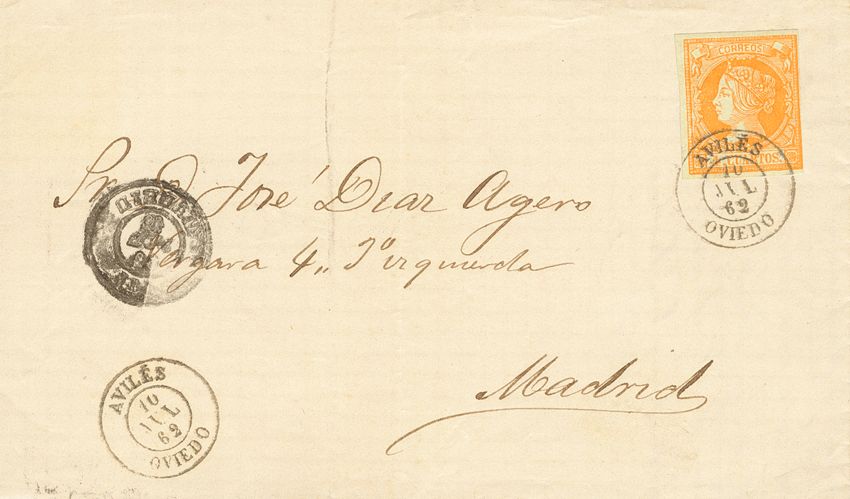 CORREOS
CUARTOS
AVILÉS
10
JUL
62
OVIEDO
Sr. D. José Diaz Agero
Vergara 4,, 3º izquierda
Madrid
AVILÉS
10
JUL
62
OVIEDO